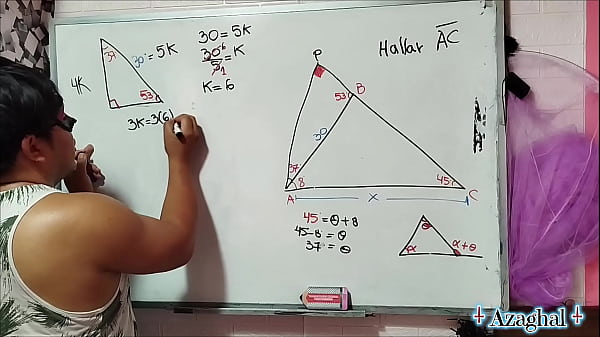 30 = 5K
30 = K
5
6
1
K = 6
37
30 = 5K
4K
53
3K = 3(6)
Hallar AC
P
53
B
30
37
8
45
A
x
C
45 = θ + 8
45 - 8 = θ
37 = θ
θ
α
α + θ
┼ Azaghal ┼